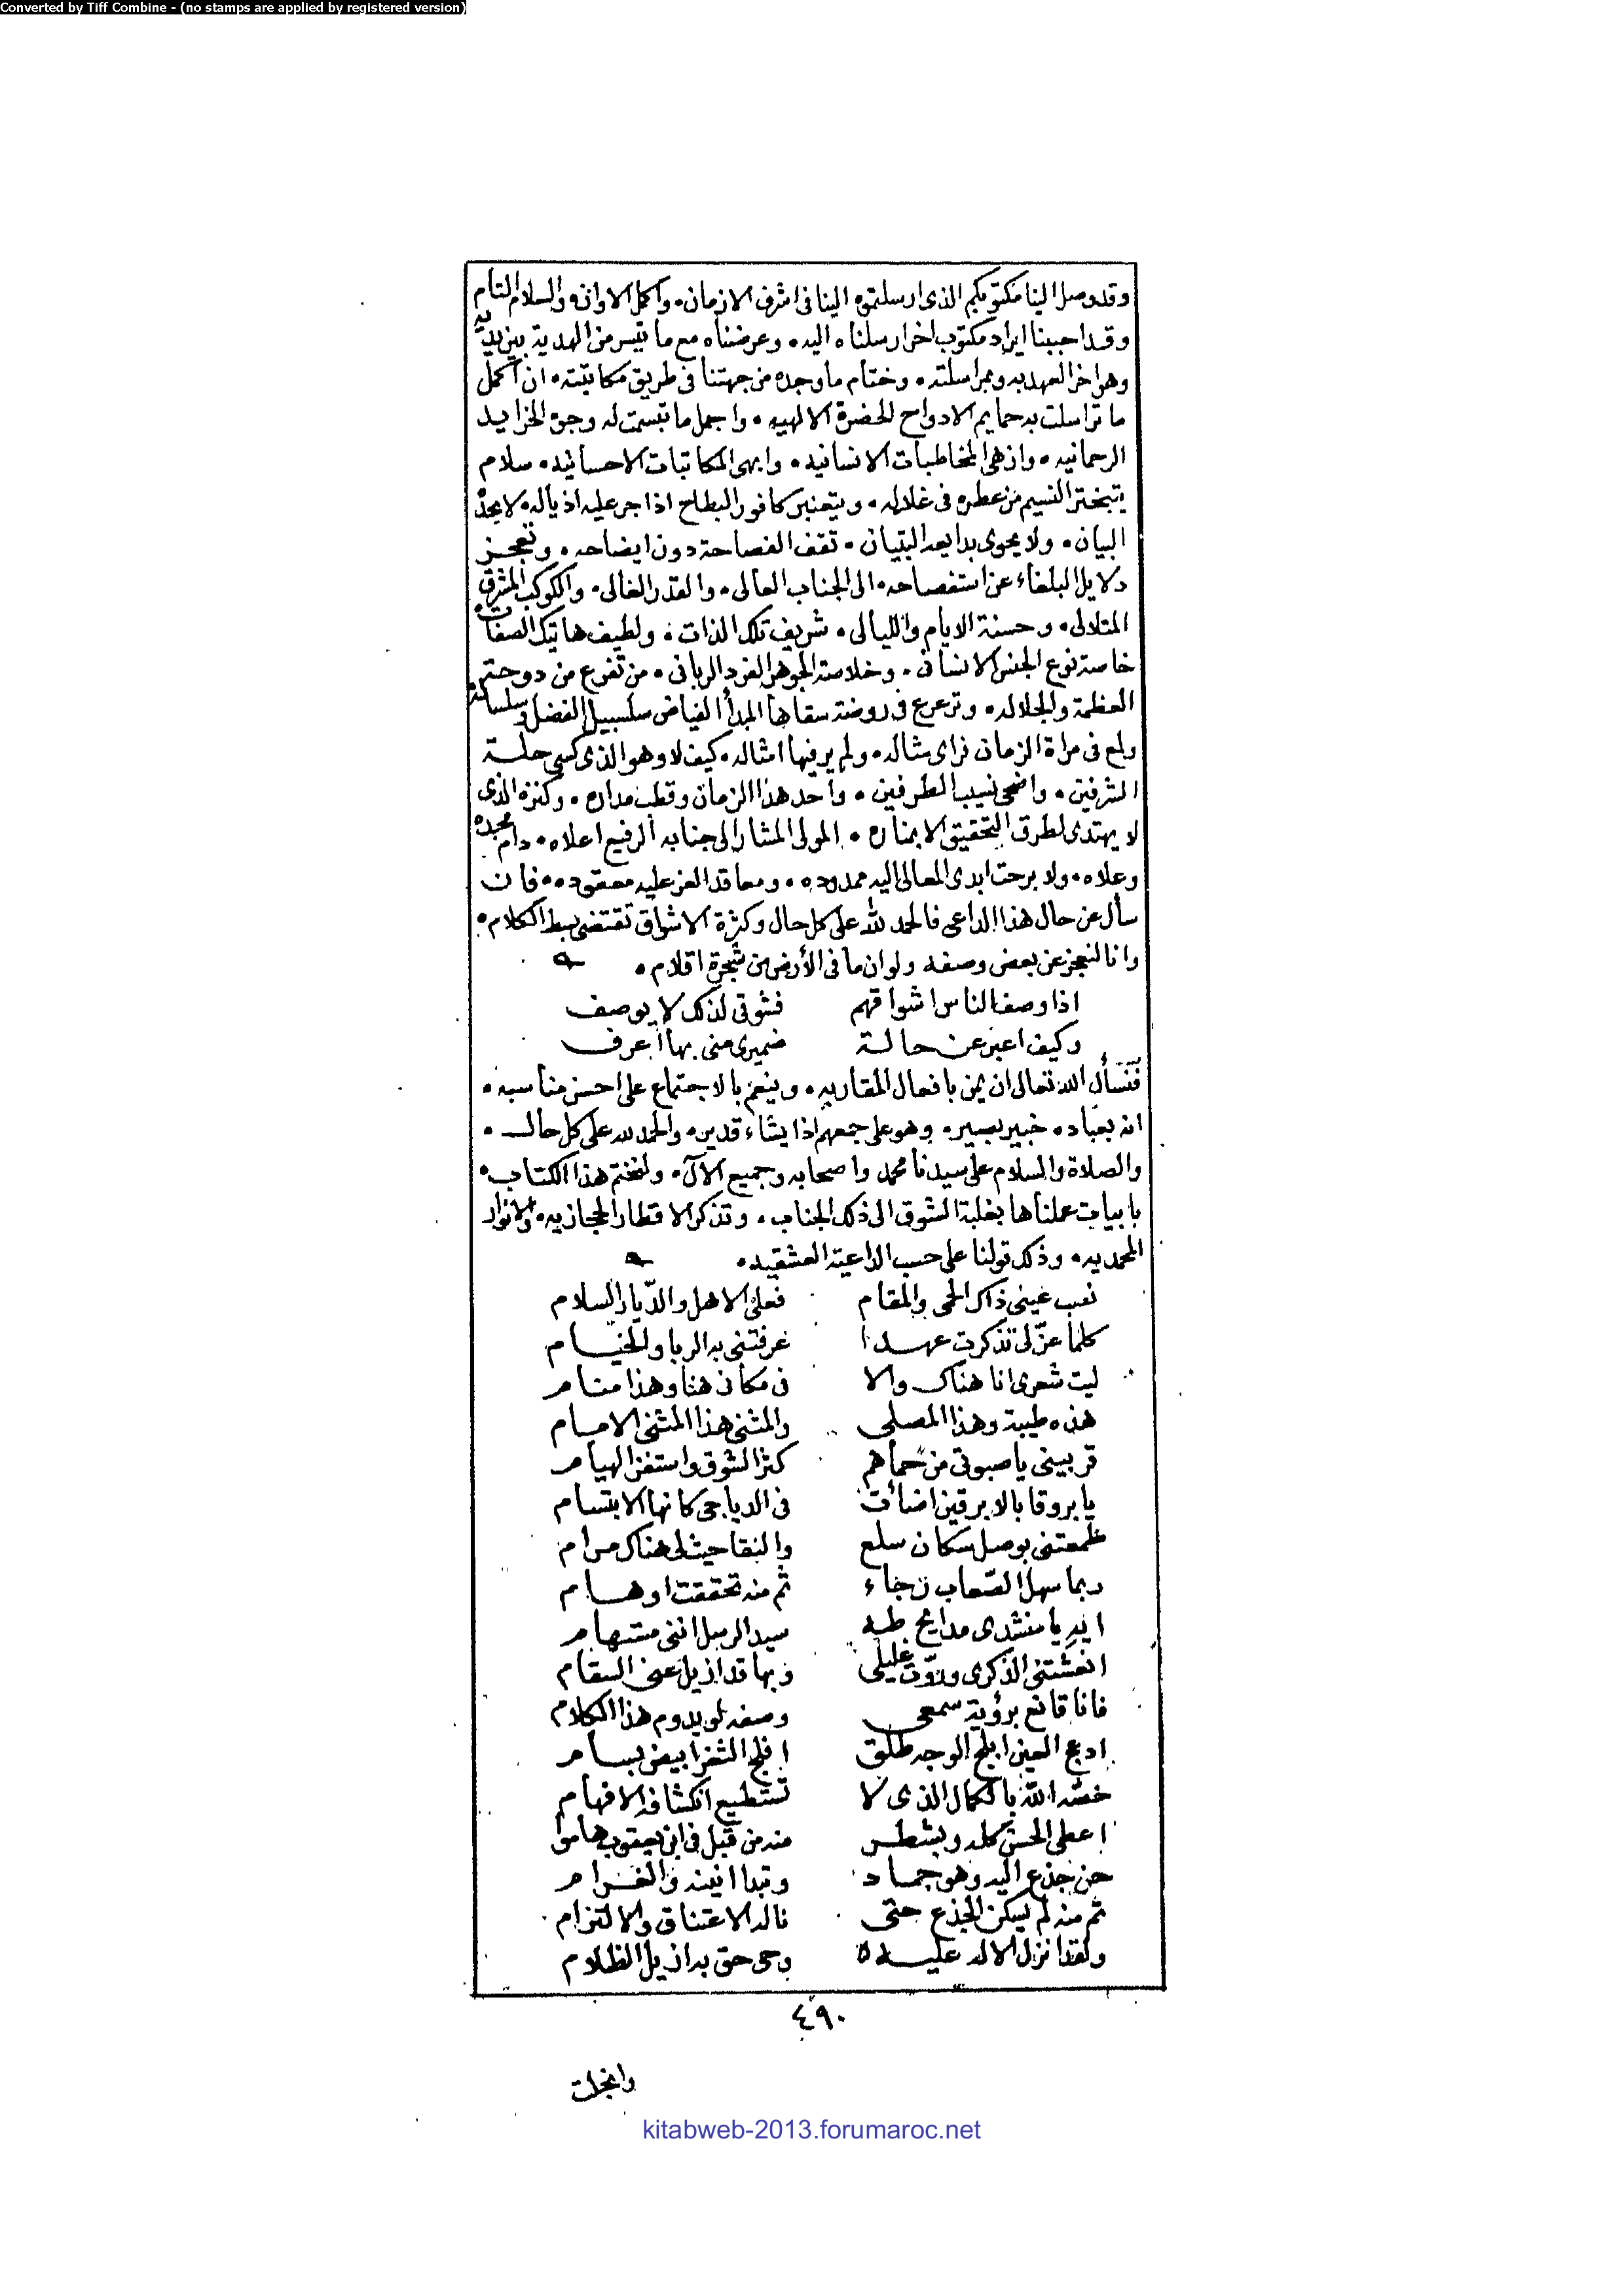 Converted by Tiff Combine - (no stamps are applied by registered version)
وقد وصل الينا مكتوبكم الذى ارسلتموه الينا فى اشرف الازمان، واكمل الاوان، والسلام التام
وقد احببنا ايراد مكتوب اخر ارسلناه اليه، وعرضناه مع ما تيسر من الهدية بين يديه
وهو اخر العهد به وبمراسلته، وختام ما وجده من جهتنا فى طريق مكاتبته، ان اكمل
ما تراسلت به حمايم الادواح الحضرة الالهيه، واجمل ما تبسمت له وجوه الخرايد
الرحمانيه، وازهى المخاطبات الانسانيه، وابهى المكاتبات الاحسانيه، سلام
يتبختر النسيم من عطره فى غلاله، ويتعنبر كافور البطاح اذا جر عليه اذياله، لا يحده
البيان، ولا يحوى بدايعه التبيان، تقف الفصاحة دون ايضاحه، وتعجز
دلايل البلغاء عن استفصاحه، الى الجناب العالى، والقدر الغالى، والكوكب المشرق
المتلالى، وحسنة الايام والليالى، شريف تلك الذات، ولطيف هاتيك الصفات
خاصة نوع الجنس الانسانى، وخلاصة الجوهر الفرد الربانى، من تفرع من دوحة
العظمة والجلاله، وترعرع فى روضة سقاها المبدأ الفياض سلسبيل الفضل وسلساله
ولمع فى مراة الزمان فراى مثاله، ولم ير فيها امثاله، كيف لا وهو الذى كسى حلة
الشرفين، واضحى نسيب الطرفين، واحد هذا الزمان وقطب مداره، وكنزه الذى
لا يهتدى لطرق التحقيق الا بمناره، المولى المشار الى جنابه الرفيع اعلاه، دام مجده
وعلاه، ولا برحت ايدى المعالى اليه ممدوده، ومعاقد العز عليه معقوده، فان
سأل عن حال هذا الداعى فالحمد لله على كل حال وكثرة الاشواق تقتضى بسط الكلام،
وانا لنعجز عن بعض وصفه ولو ان ما فى الأرض من شجرة اقلام،
اذا وصف الناس اشواقهم فشوقى لذلك لا يوصف
وكيف اعبر عن حالة ضميرى منى بها أعرف
فنسأل الله تعالى ان يمن بافعال المقاربه، وينعم بالاجتماع على احسن مناسبه،
انه بعباده خبير بصير، وهو على جمعهم اذا يشاء قدير، والحمد لله على كل حال،
والصلاة والسلام على سيدنا محمد واصحابه وجميع الآل، ولنختم هذا الكتاب،
بابيات عملناها بغلبة الشوق الى ذلك الجناب، وتذكر الاقطار الحجازيه، والانوار
المحمديه، وذلك قولنا على حسب الداعية العشقيه،
نصب عينى ذاك الحمى والمقام فعلى الاهل والديار السلام
كلما عزلى تذكرت عهدا عرفتنى به الربا والخيام
ليت شعرى انا هناك والا فى مكانى هنا وهذا منام
هذه طيبة وهذا المصلى والمثنى هذا المثنى الامام
قربينى يا صبوتى من حماهم كثر الشوق واستفز الهيام
يا بروقا بالابرقين اضائت فى الدياجى كانها الابتسام
طمعتنى بوصل سكان سلع والنقا حيث لى هناك مرام
ربما سهل الصعاب رجاء ثم منه تحققت اوهام
ايه يا منشدى مدايح طه سيد الرسل اننى مستهام
انعشتنى الذكرى وروت غليلى وبها قد ازيل عنى السقام
فانا قانع برؤية سمعى وصفه لو يدوم هذا الكلام
ادعج العين ابلج الوجه طلق افلج الثغر ابيض بسام
خصه الله بالكمال الذى لا تستطيع انكشافه الافهام
اعطى الحسن كله وبشطر منه من قبل فى ابن يعقوب هاموا
حن جذع اليه وهو جماد وتبدا انينه والغرام
ثم منه لم يسكن الجذع حتى ناله الاعتناق والالتزام
ولقد انزل الاله عليه وحى حق به ازيل الظلام
٤٩٠
وانجلت
kitabweb-2013.forumaroc.net